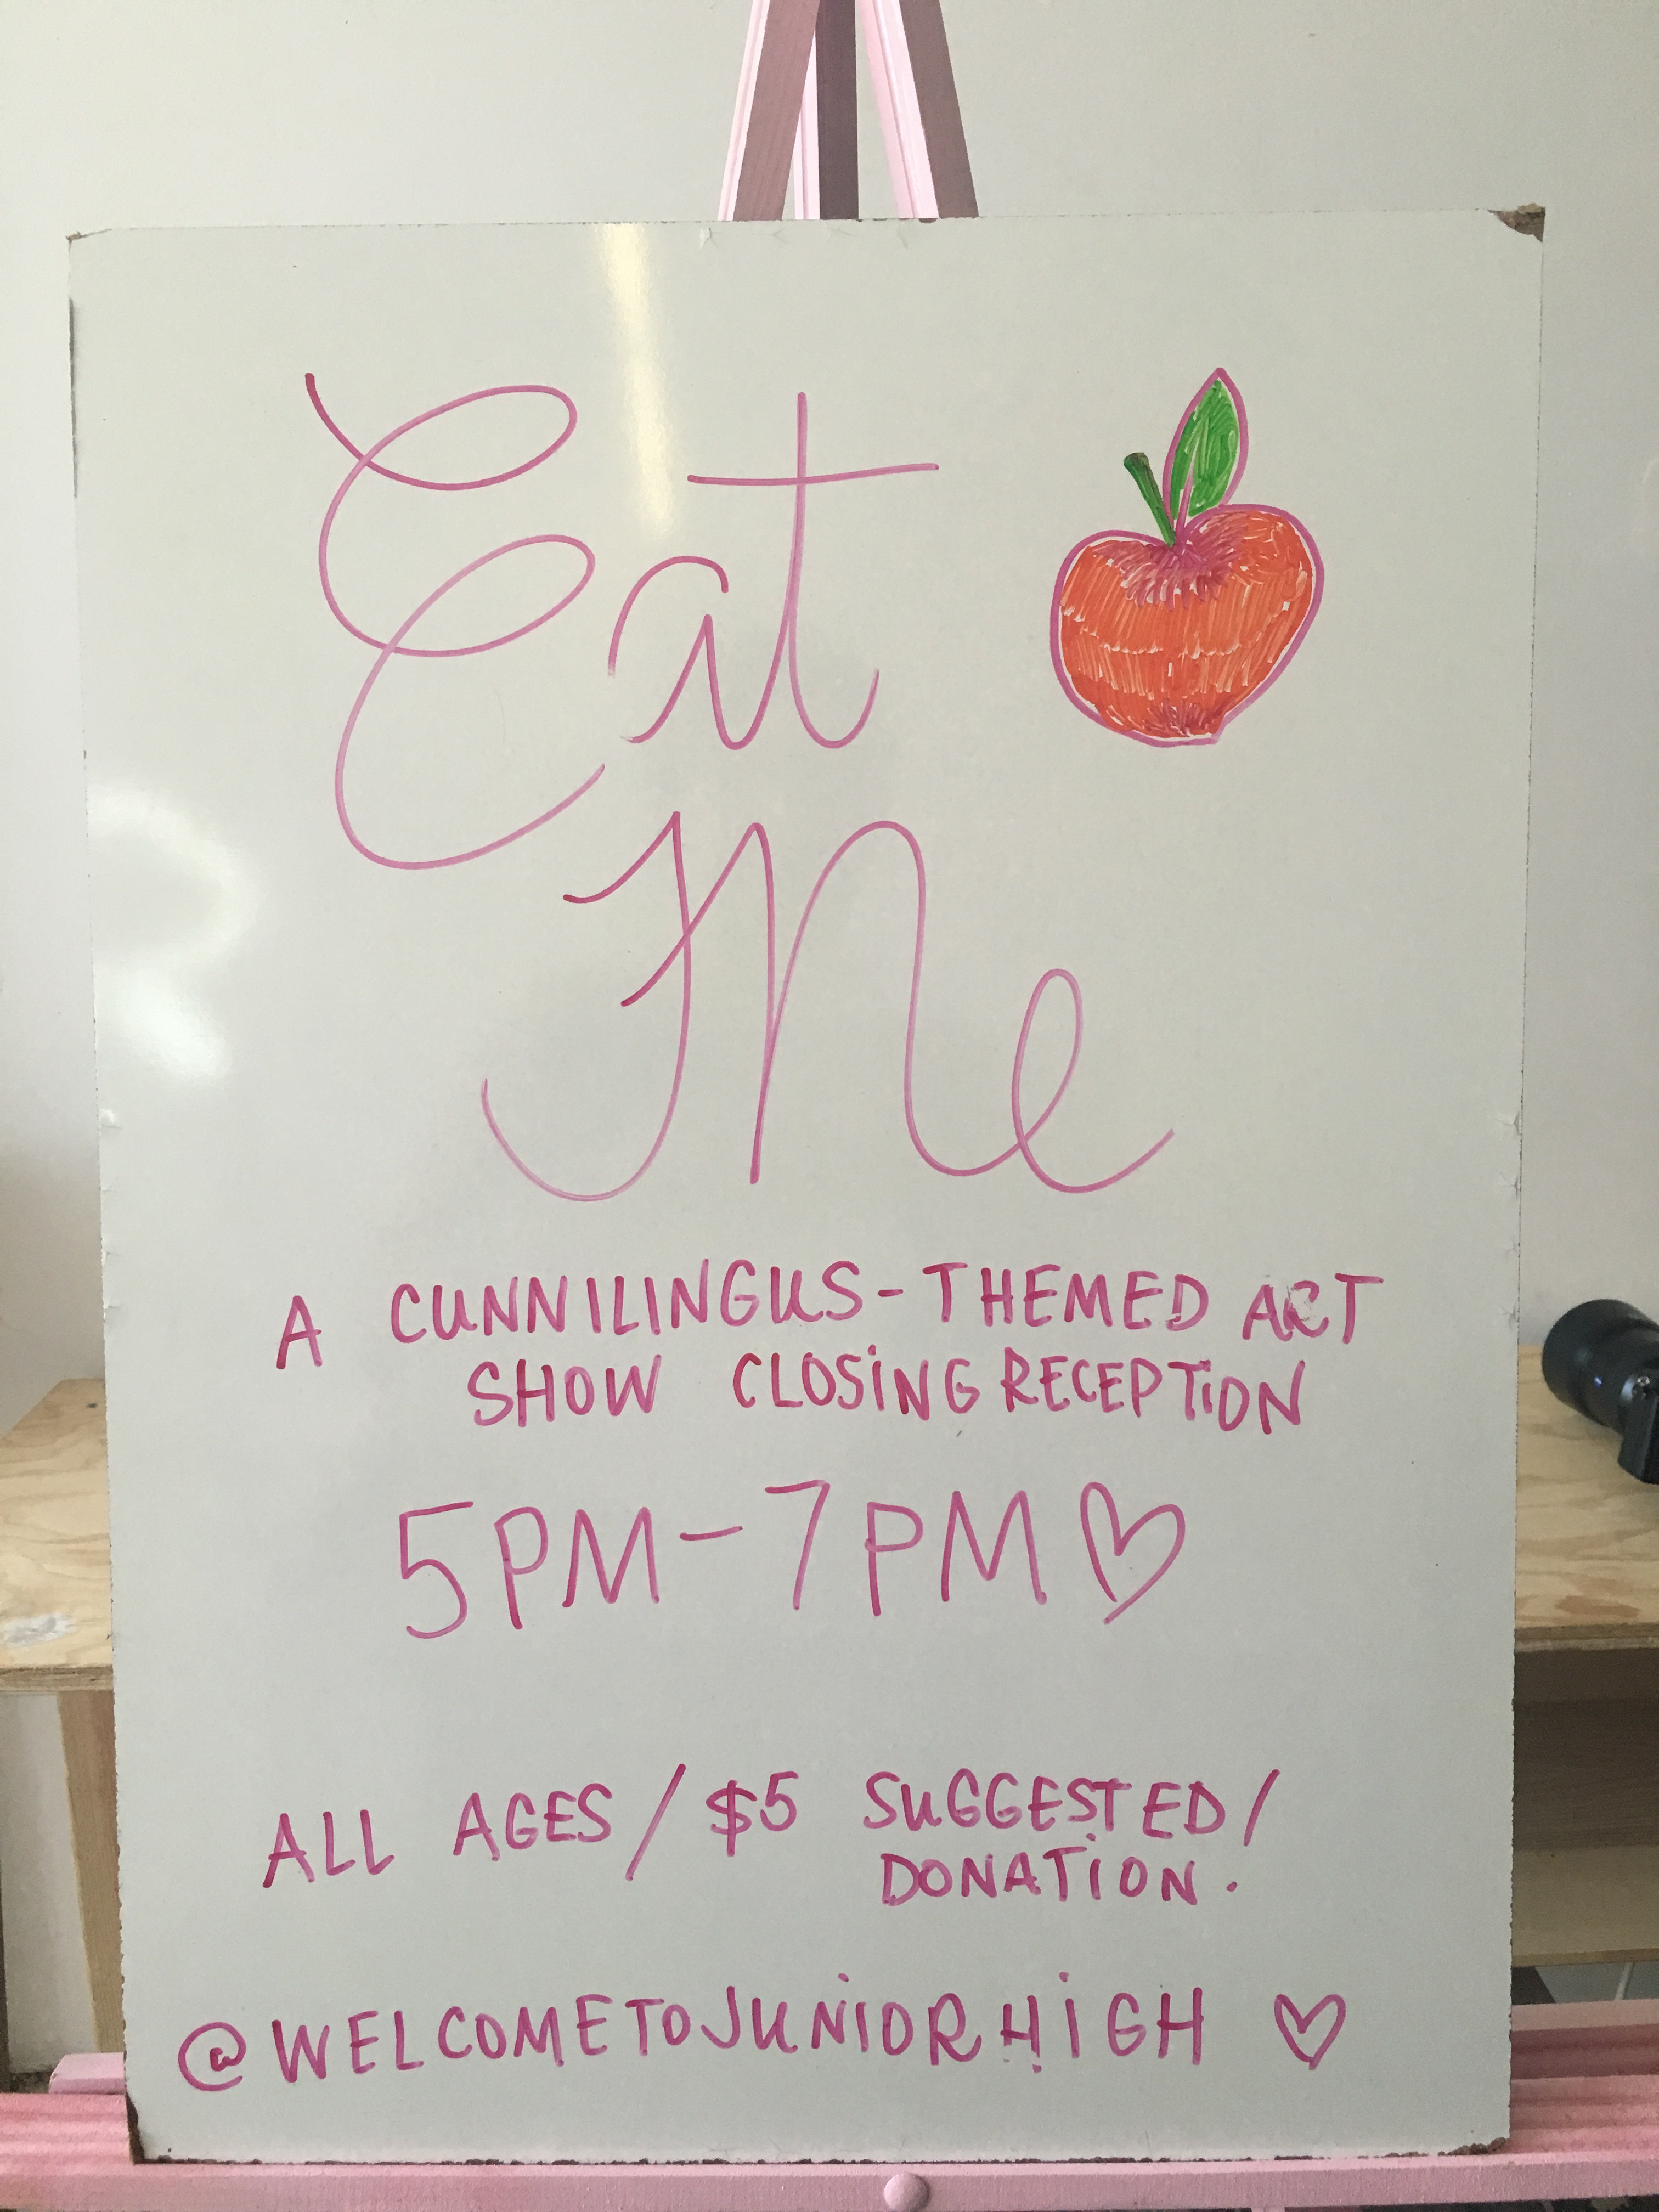 Eat
Me
A CUNNILINGUS-THEMED ART
SHOW CLOSING RECEPTION
5PM-7PM♡
ALL AGES/$5 SUGGESTED/
DONATION.
@WELCOMETOJUNIORHIGH ♡